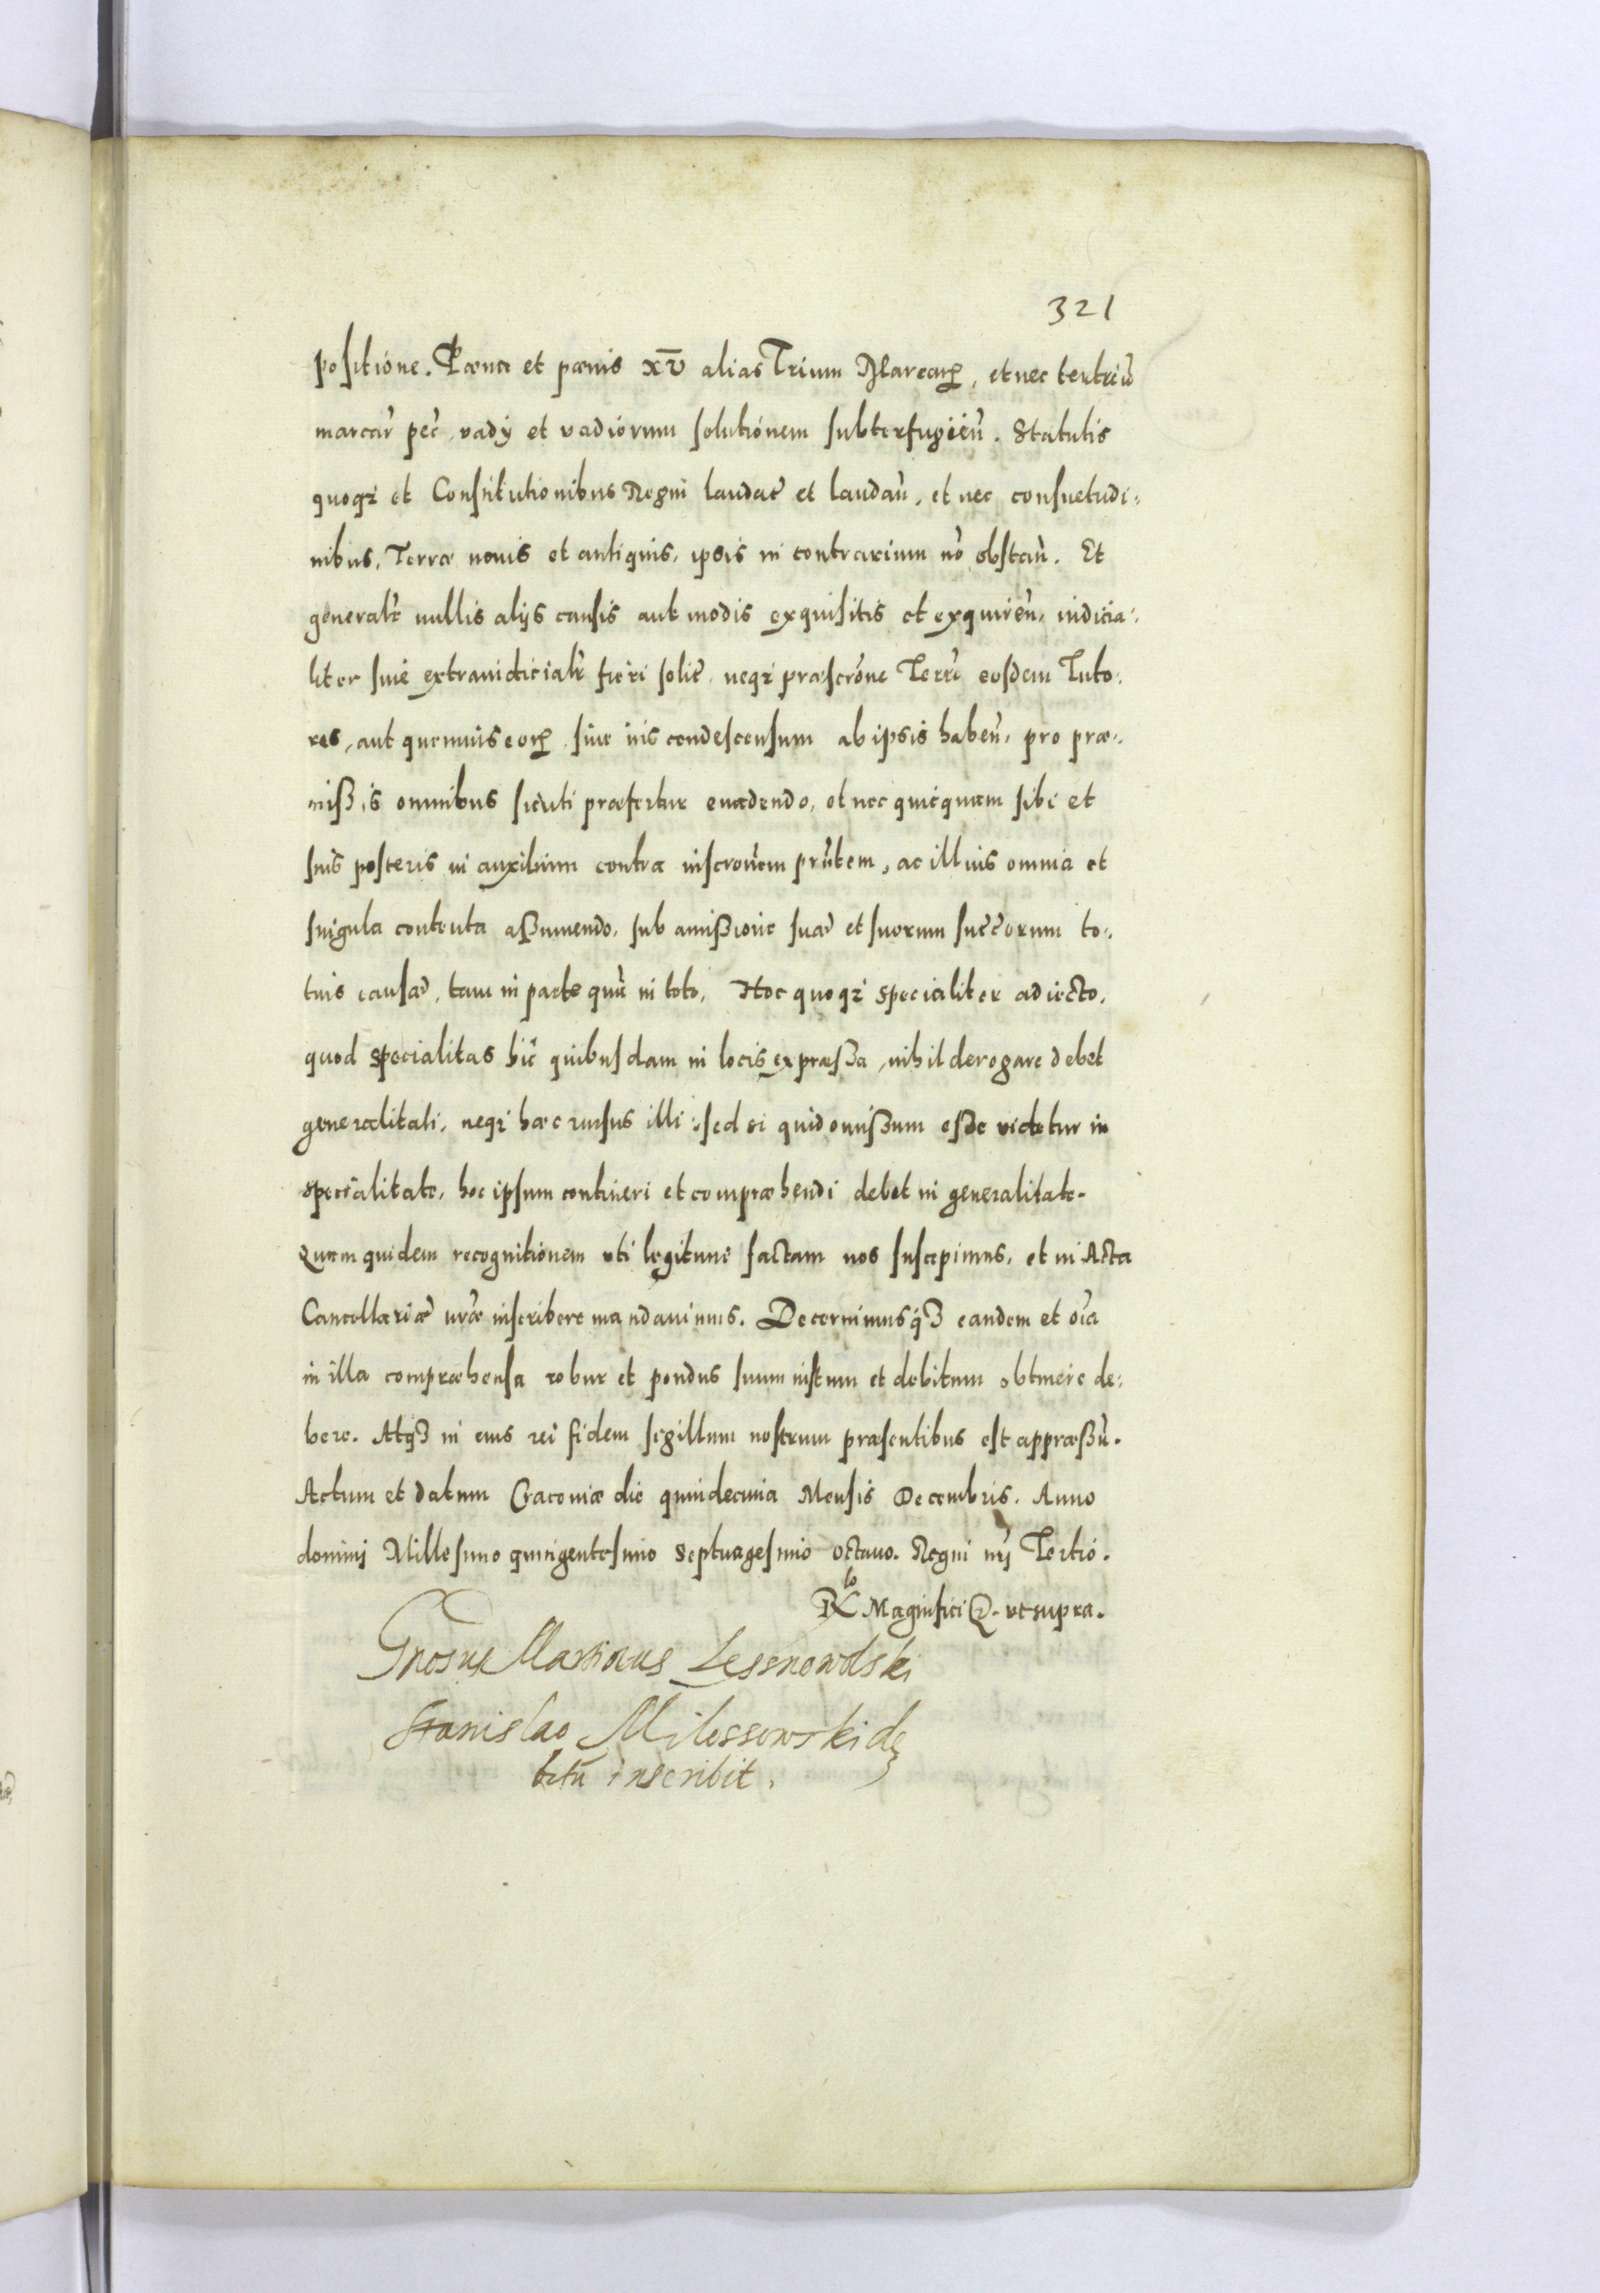 321
positione. Pœna et pœnis xv alias Trium Marcarꝝ, et nec tertriũ
marcar̃ pec̃, vadÿ et vadiorum solutionem subterfugieñ. Statutis
quoqȝ et Constitutionibus Regni laudat̃ et laudañ, et nec consuetudi:
nibus, Terræ nouis et antiquis, ipsis in contrarium nõ obstañ. Et
generalr̃ nullis alijs causis aut modis exquisitis et exquireñ, iudicia:
liter siue extraiudicialr̃ fieri solit̃, neqȝ præscrõne Terr̃ eosdem Tuto:
res, aut quemuis eorꝝ, siue ius condescensum ab ipsis habeñ, pro præ:
mißis omnibus sicuti præfertur euadendo, et nec quicquam sibi et
suis posteris in auxilium contra inscrõnem pñtem, ac illius omnia et
singula contenta aßumendo, sub amißione suæ et suorum succ̃orum to:
tius causæ, tam in parte quã in toto, Hoc quoqȝ specialiter adiecto,
quod specialitas hic̃ quibusdam in locis expræßa, nihil derogare debet
generalitati, neqȝ hæc rursus illi: sed si quid omißum eße videtur in
specialitate, hoc ipsum contineri et compræhendi debet in generalitate.
Quam quidem recognitionem uti legitime factam nos suscepimus, et in Acta
Cancellariæ nr̃æ inscribere mandauimus. Decernimusqȝ eandem et oĩa
in illa compræhensa robur et pondus suum iustum et debitum obtinere de:
bere. Atqȝ in eius rei fidem sigillum nostrum præsentibus est appræßũ.
Actum et datum Cracoviæ die quindecima Mensis Decembris. Anno
domini Millesimo quingentesimo Septuagesimo octauo. Regni nr̃j Tertio.
Rlo Magnifici &. ut supra.
Gnosus Martinus Lesnowolski
Stanislao Milessewski de
bitũ inscribit.